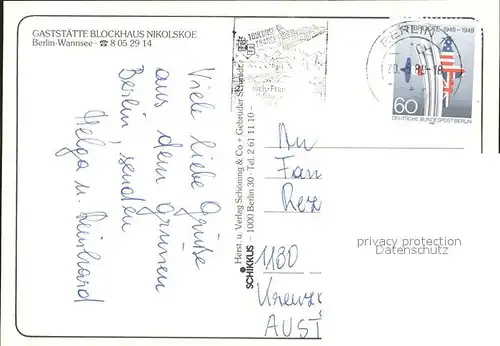 GASTSTÄTTE BLOCKHAUS NIKOLSKOE
Berlin-Wannsee · ☎ 8 05 29 14
Viele liebe Grüße
aus dem grünen
Berlin, senden
Helga u. Reinhard
SCHIKKUS
Herst. u. Verlag Schöning & Co + Gebrüder Schmidt
– 1000 Berlin 30 · Tel. 2 61 11 10 –
BERLIN
LUFTBRÜCKE 1948-1949
60
DEUTSCHE BUNDESPOST BERLIN
An
Fam
1180
AUST
privacy protection
Datenschutz